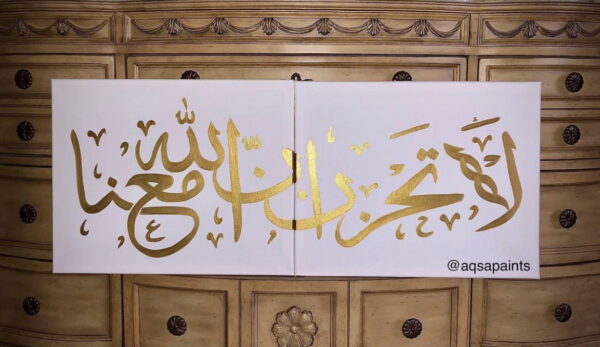 لا تحزن إن الله معنا
@aqsapaints